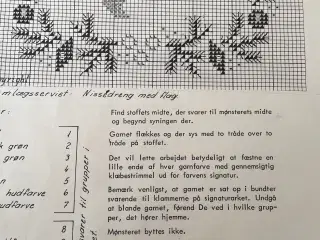 pyright
mlægsserviet: Nissedreng med flag
Find stoffets midte, der svarer til mønsterets midte
og begynd syningen der.
1
k grøn 2
grøn 3
4
5
6
hudfarve 7
8
9
svarer til grupper i
Garnet flækkes og der sys med to tråde over to
tråde på stoffet.
Det vil lette arbejdet betydeligt at fæstne en
lille ende af hver garnfarve med gennemsigtig
klæbestrimmel ud for farvens signatur.
Bemærk venligst, at garnet er sat op i bundter
svarende til klammerne på signaturarket. Undgå
at blande garnet, førend De ved i hvilke grup-
per, det hører hjemme.
Mønsteret byttes ikke.